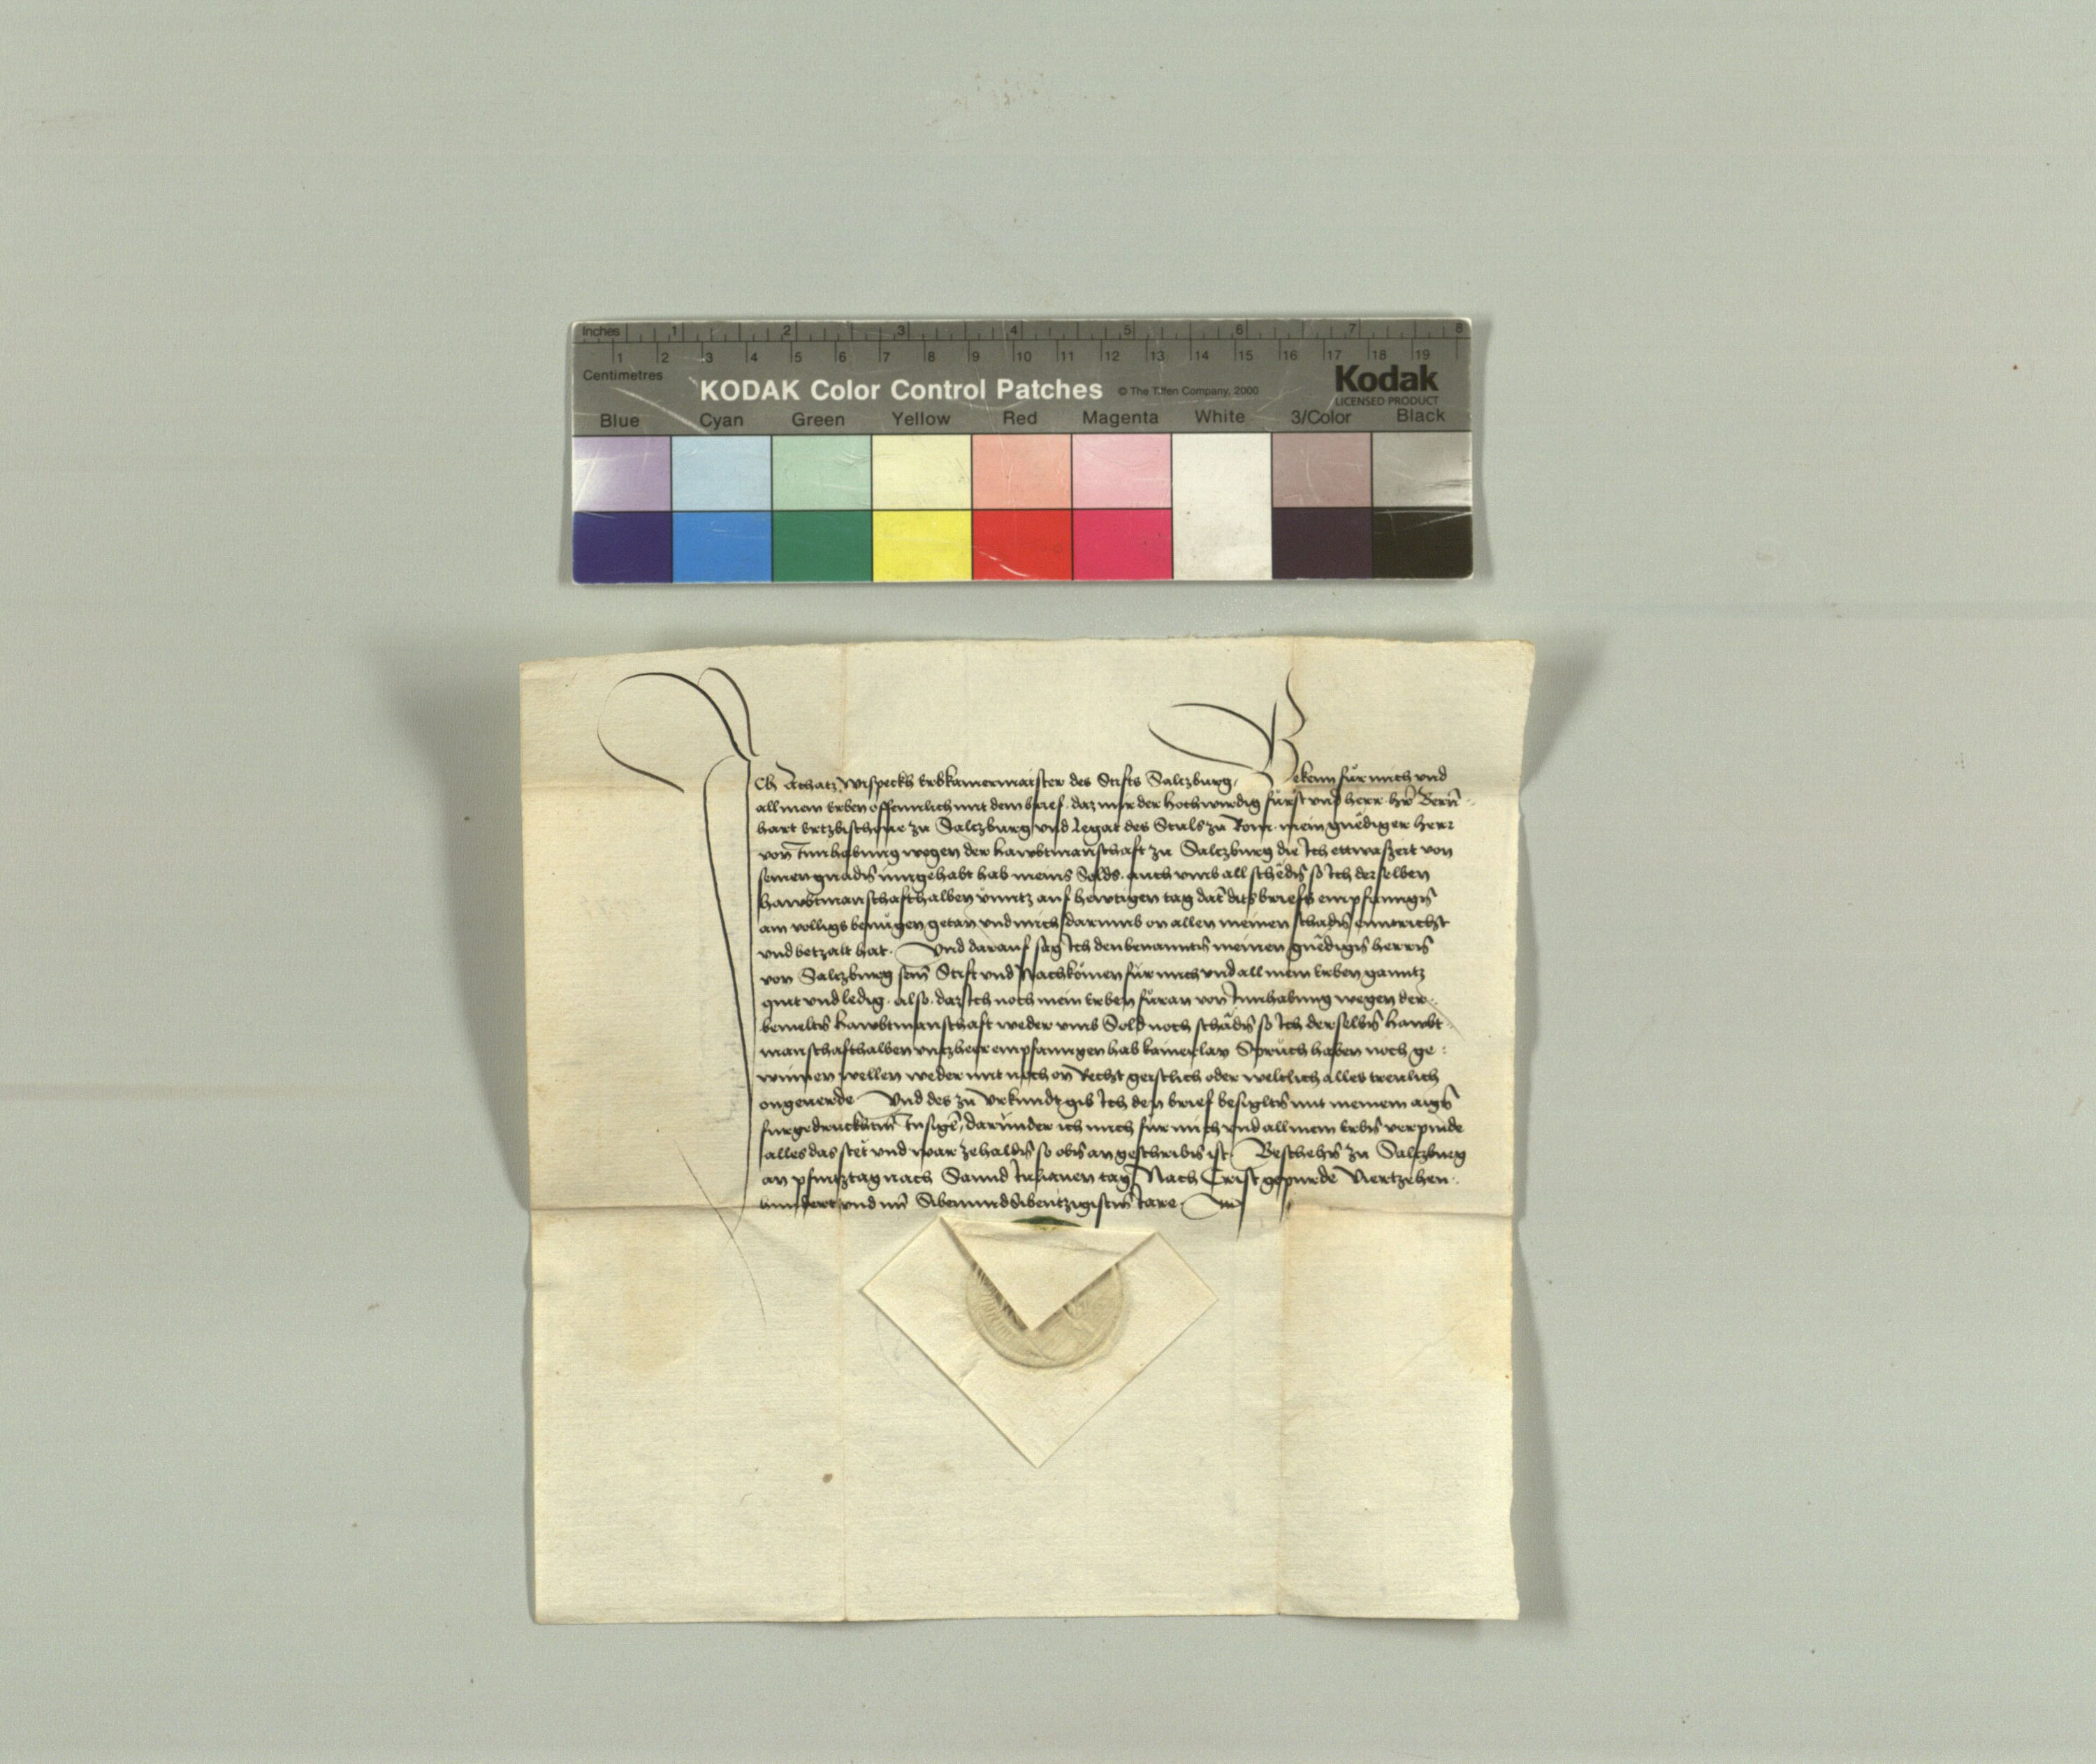 Inches 1 2 3 4 5 6 7 8
1 2 3 4 5 6 7 8 9 10 11 12 13 14 15 16 17 18 19
Centimetres
KODAK Color Control Patches © The Tiffen Company, 2000 Kodak
LICENSED PRODUCT
Blue Cyan Green Yellow Red Magenta White 3/Color Black
Ich Achatz Wispeckh Erbkamermaister des Stifts Salczburg, Bekenn für mich vnd
all mein Erben offennlich mit dem brief. daz mir der Hochwirdig fürst vnd herr her Bern
hart Ertzbischoue zu Salczburg vnd Legat des Stuls zu Rom. mein gnêdiger herr
von Innhabung wegen der Hawbtmanschaft zu Salczburg die Ich ettwaszeit von
seinen gnadn Inngehabt hab meins Solds. auch vmb all schêdn so Ich derselben
Hawbtmanschaft halben vnntz auf hewtigen tag dat ditz briefs empfanngn
ain volligs benügen getan vnd mich darumb on allen meinen schadn enntricht
vnd betzalt hat. Vnd darauf sag Ich den benanntn meinen gnêdign herrn
von Salczburg sein Stift vnd Nachkömen für mich vnd all mein Erben ganntz
quit vnd ledig. also. daz Ich noch mein Erben füran von Innhabung wegen der
bemeltn Hawbtmanschaft weder vmb Sold noch schâdn so Ich derselbn Hawbt
manschaft halben vntzheer empfanngen hab kainerlay Sprüch haben noch ge
winnen wellen weder mit noch on Recht geistlich oder weltlich alles treulich
ongeuerde Vnd des zu Vrkundt gib Ich den brief besigltn mit meinem aign
furgedrucktem Insigel, darunder ich mich für mich vnd all mein Erbn verpinde
alles das stêt vnd war zehaldn so obn angeschribn ist. Beschehn zu Salczburg
an pfintztag nach Sannd Julianen tag Nach Crist gepurde Viertzehen
hundert vnd im Sibenundsibentzigistm Jare